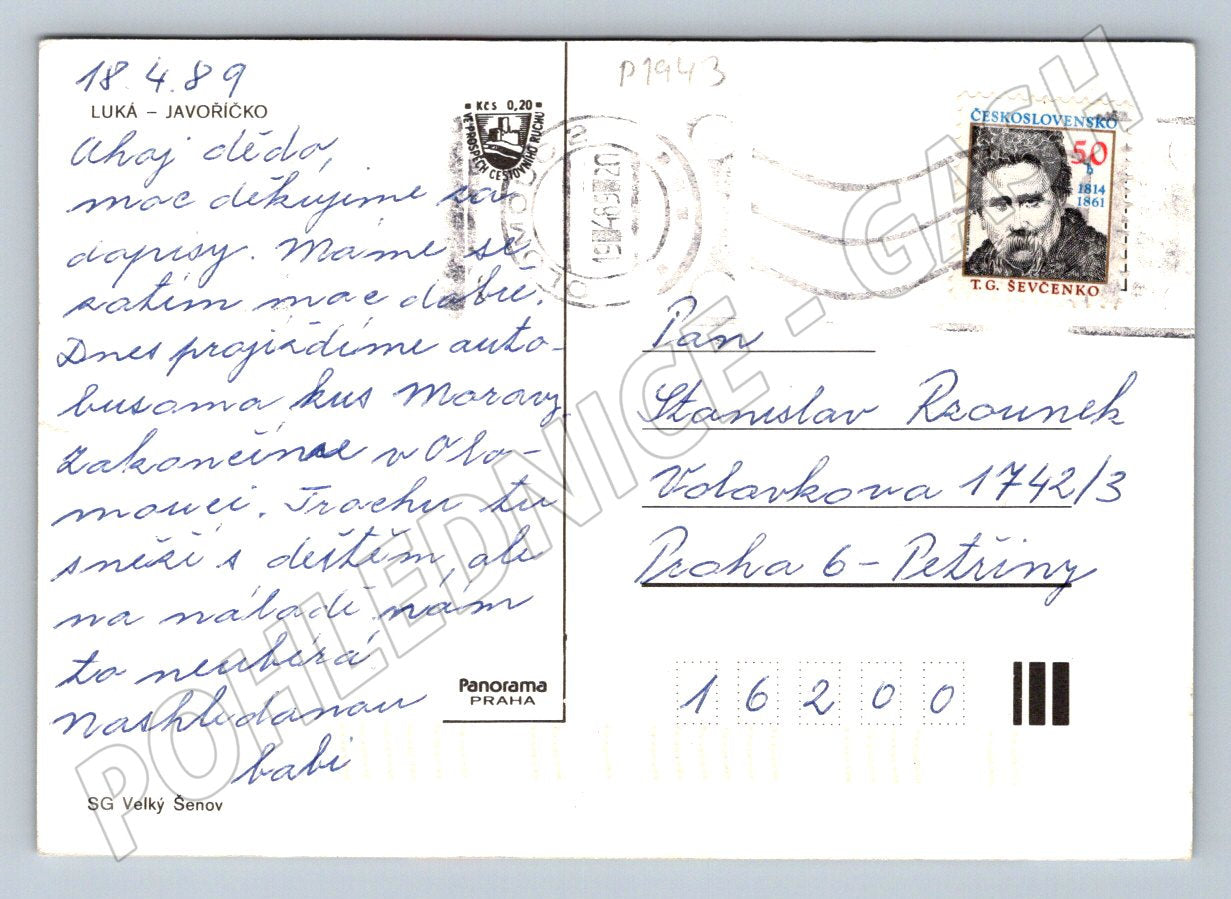 18.4.89
LUKÁ – JAVOŘÍČKO
Ahoj dědo,
moc děkujeme za
dopisy. Máme se
zatím moc dobře.
Dnes projíždíme auto-
busama kus Moravy,
zakončíme v Olo-
mouci. Trochu tu
sněží s deštěm, ale
na náladě nám
to neubírá
Nashledanou
babi
SG Velký Šenov
Panorama
PRAHA
Kčs 0,20
VE PROSPĚCH CESTOVNÍHO RUCHU
P1943
OLOMOUC 2
ČESKOSLOVENSKO
50
h
1814
1861
T. G. ŠEVČENKO
Pan
Stanislav Rzounek
Volavkova 1742/3
Praha 6 – Petřiny
16200
POHLEDNICE - GASH